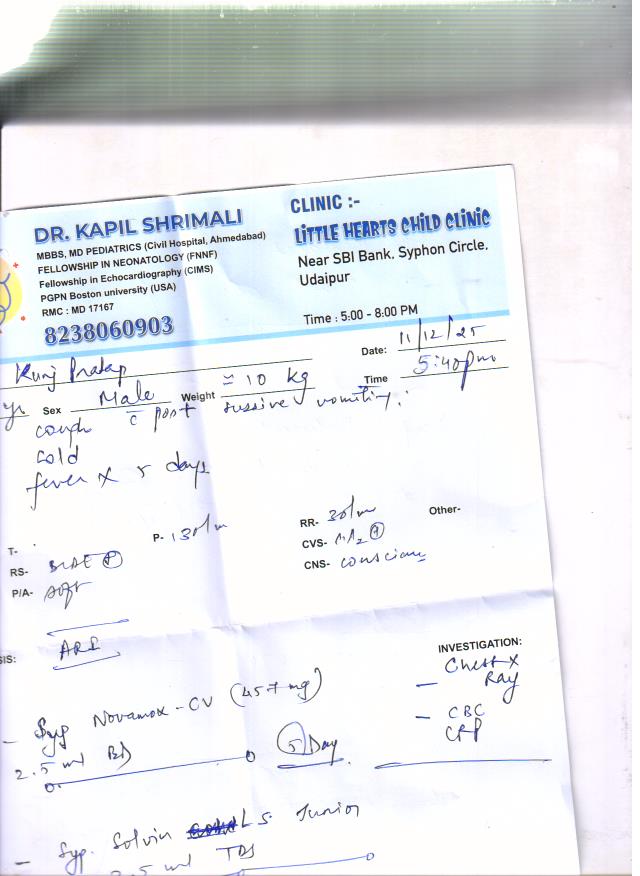 DR. KAPIL SHRIMALI
MBBS, MD PEDIATRICS (Civil Hospital, Ahmedabad)
FELLOWSHIP IN NEONATOLOGY (FNNF)
Fellowship in Echocardiography (CIMS)
PGPN Boston university (USA)
RMC : MD 17167
8238060903
CLINIC :-
LITTLE HEARTS CHILD CLINIC
Near SBI Bank, Syphon Circle,
Udaipur
Time : 5:00 - 8:00 PM
Date: 11/12/25
Kunj Pratap
Time 5:40pm
yr Sex Male Weight ≈ 10 kg
cough c̄ post tussive vomiting.
cold
fever x 5 days
T- P- 130/m RR- 30/m Other-
RS- BLAE ⊕ CVS- S1S2 ⊕
P/A- soft CNS- conscious
SIS: ARI
INVESTIGATION:
- Chest X
Ray
- CBC
CRP
- Syp Novamox - CV (457 mg)
2.5 ml BD 5 Day
- Syp. Solvin LS Junior
2.5 ml TDS